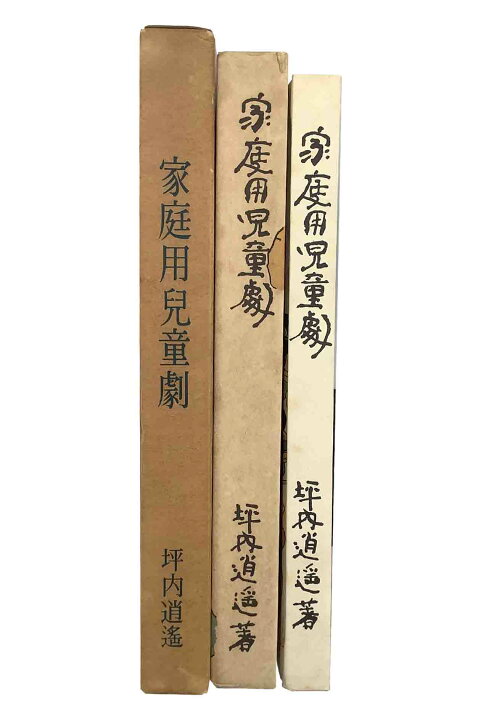 家庭用兒童劇
坪内逍遙
家庭用児童劇
坪内逍遥著
家庭用児童劇
坪内逍遥著